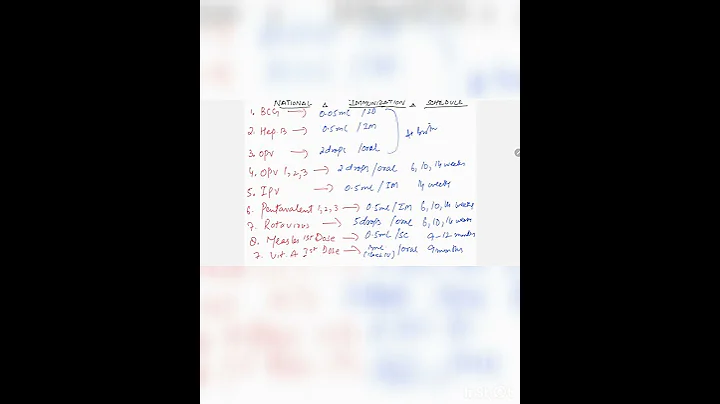 NATIONAL IMMUNIZATION SCHEDULE
1. BCG → 0.05ml / ID
2. Hep. B → 0.5ml / IM
3. OPV → 2 drops / oral
4. OPV 1,2,3 → 2 drops / oral 6, 10, 14 weeks
5. IPV → 0.5ml / IM 14 weeks
6. Pentavalent 1,2,3 → 0.5ml / IM 6, 10, 14 weeks
7. Rotavirus → 5 drops / oral 6, 10, 14 weeks
8. Measles 1st Dose → 0.5ml / SC 9-12 months
7. Vit. A 1st Dose → / oral 9 months